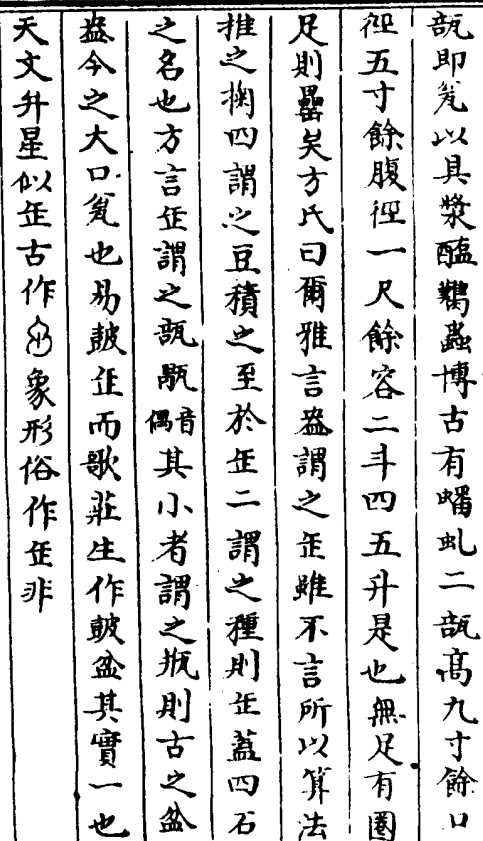 瓿即瓮以具漿醯鷄蟲博古有蟠虬二瓿高九寸餘口
徑五寸餘腹徑一尺餘容二斗四五升是也無足有圈
足則罍矣方氏曰爾雅言盎謂之缶雖不言所以算法
推之掬四謂之豆積之至於缶二謂之種則缶蓋四石
之名也方言缶謂之瓿㼴音偶其小者謂之瓶則古之盆
盎今之大口瓮也易鼓缶而歌莊生作鼓盆其實一也
天文弁星似缶古作象形俗作缶非